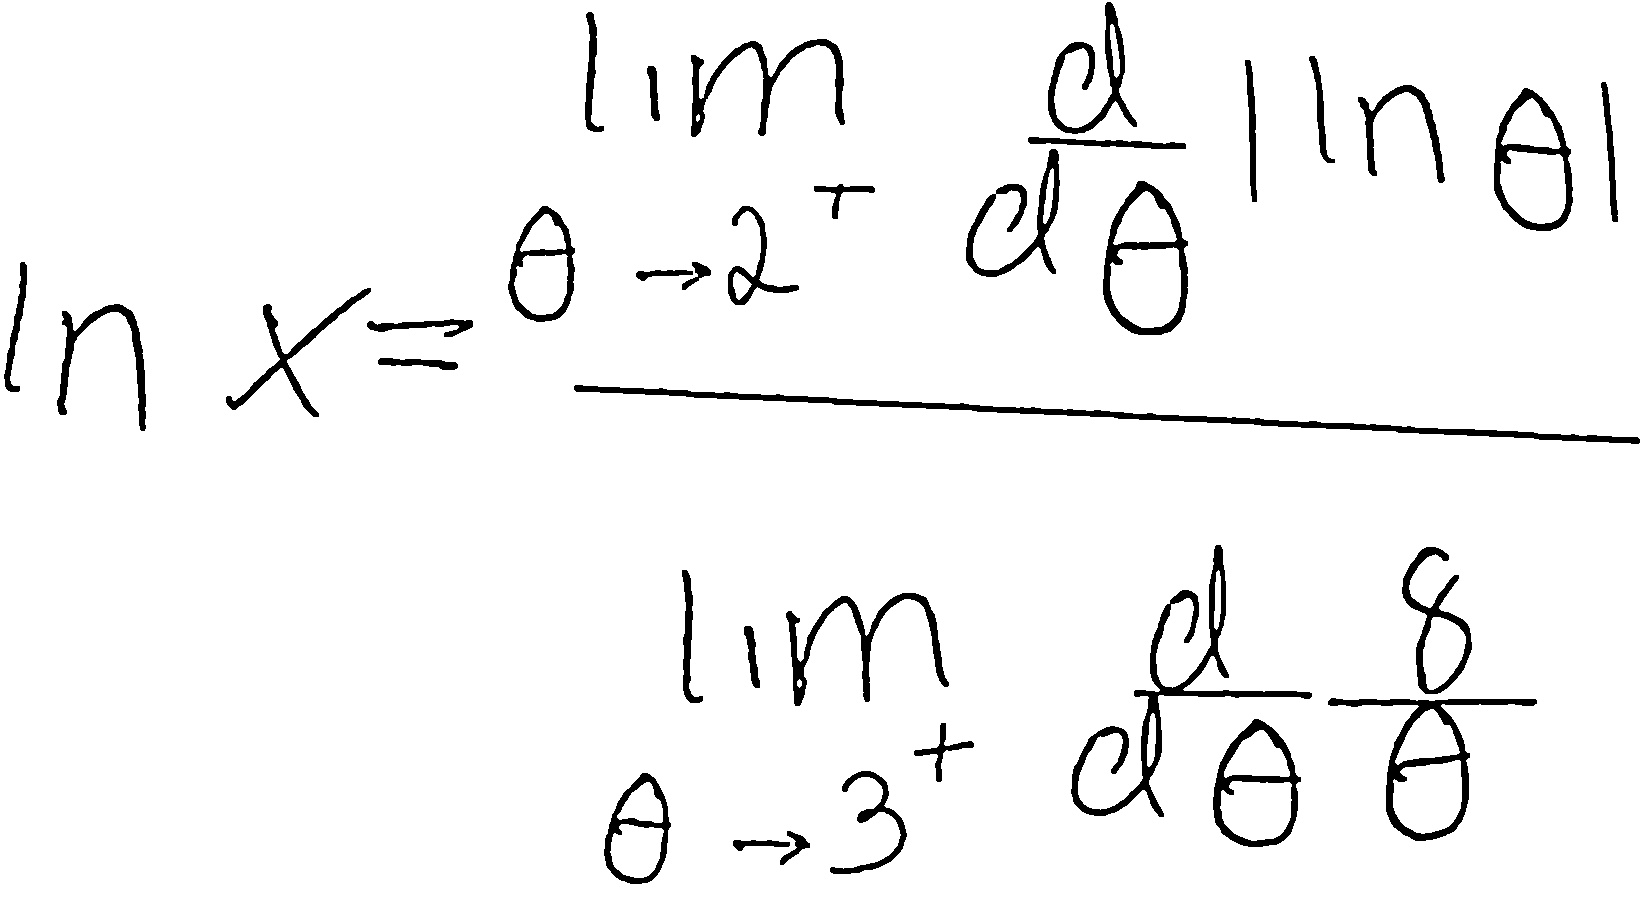 \ln x = \frac{\lim_{\theta \to 2^+} \frac{d}{d\theta} |\ln \theta|}{\lim_{\theta \to 3^+} \frac{d}{d\theta} \frac{8}{\theta}}